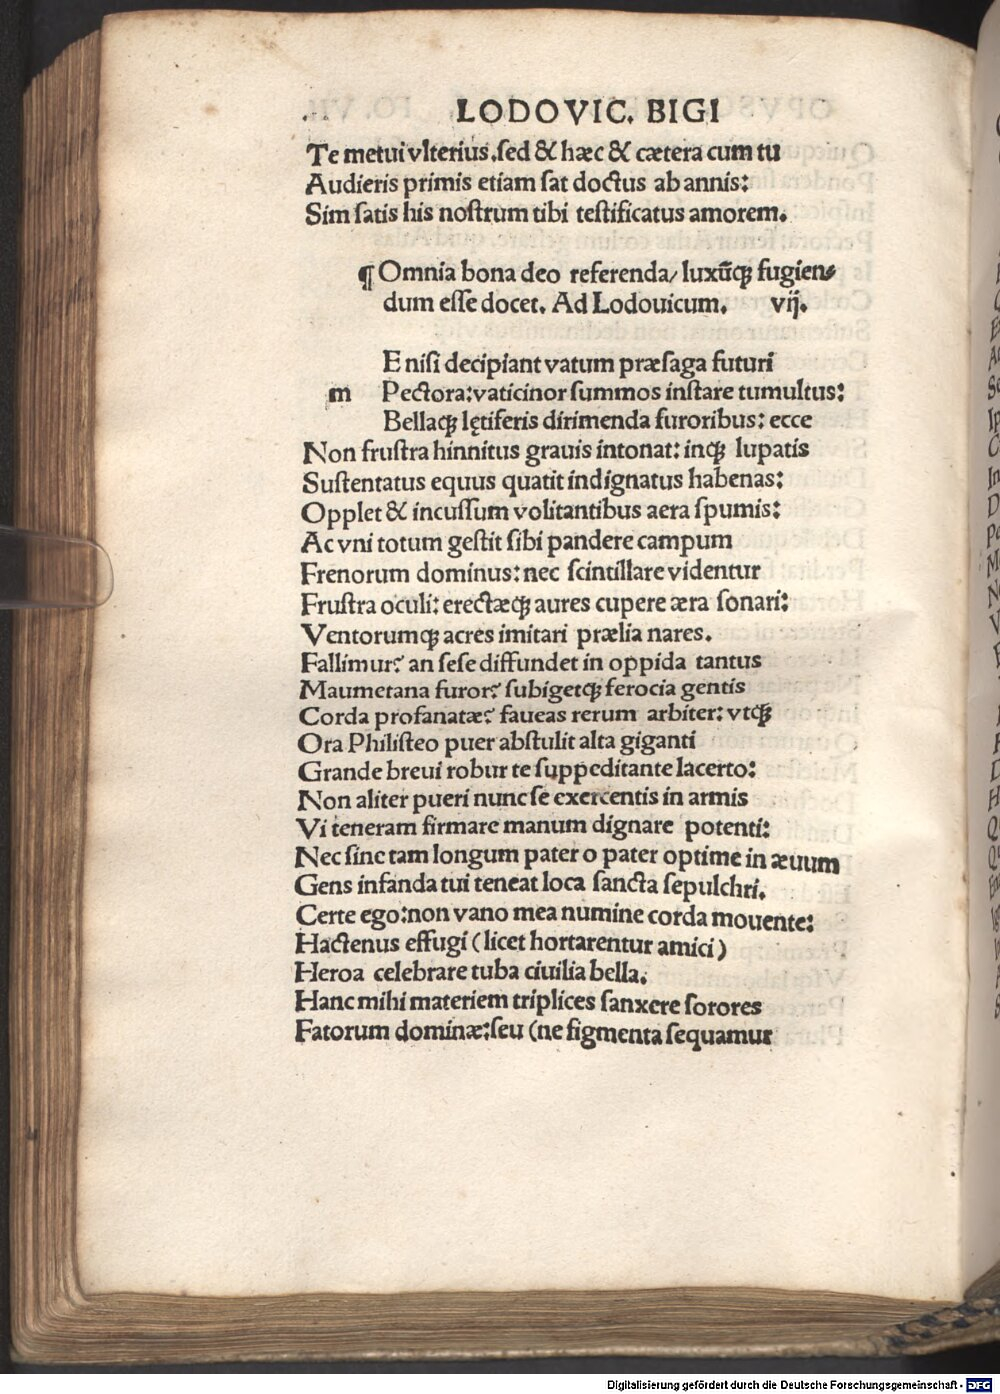 LODOVIC. BIGI
Te metui vlterius.sed & hæc & cætera cum tu
Audieris primis etiam ſat doctus ab annis:
Sim ſatis his noſtrum tibi teſtificatus amorem.
¶ Omnia bona deo referenda/ luxūꝙ fugien⸗
dum eſſe docet. Ad Lodouicum. vij.
E niſi decipiant vatum præſaga futuri
m Pectora:vaticinor ſummos inſtare tumultus:
Bellaꝙ lętiferis dirimenda furoribus: ecce
Non fruſtra hinnitus grauis intonat: inꝙ lupatis
Suſtentatus equus quatit indignatus habenas:
Opplet & incuſſum volitantibus aera ſpumis:
Ac vni totum geſtit ſibi pandere campum
Frenorum dominus: nec ſcintillare videntur
Fruſtra oculi: erectæꝙ aures cupere æra ſonari:
Ventorumꝙ acres imitari prælia nares.
Fallimur? an ſeſe diffundet in oppida tantus
Maumetana furor? ſubigetꝙ ferocia gentis
Corda profanatæ? faueas rerum arbiter: vtꝙ
Ora Philiſteo puer abſtulit alta giganti
Grande breui robur te ſuppeditante lacerto:
Non aliter pueri nunc ſe exercentis in armis
Vi teneram firmare manum dignare potenti:
Nec ſinc tam longum pater o pater optime in æuum
Gens infanda tui teneat loca ſancta ſepulchri.
Certe ego:non vano mea numine corda mouente:
Hactenus effugi (licet hortarentur amici)
Heroa celebrare tuba ciuilia bella.
Hanc mihi materiem triplices ſanxere ſorores
Fatorum dominæ:ſeu (ne figmenta ſequamur
Digitalisierung gefördert durch die Deutsche Forschungsgemeinschaft - DFG